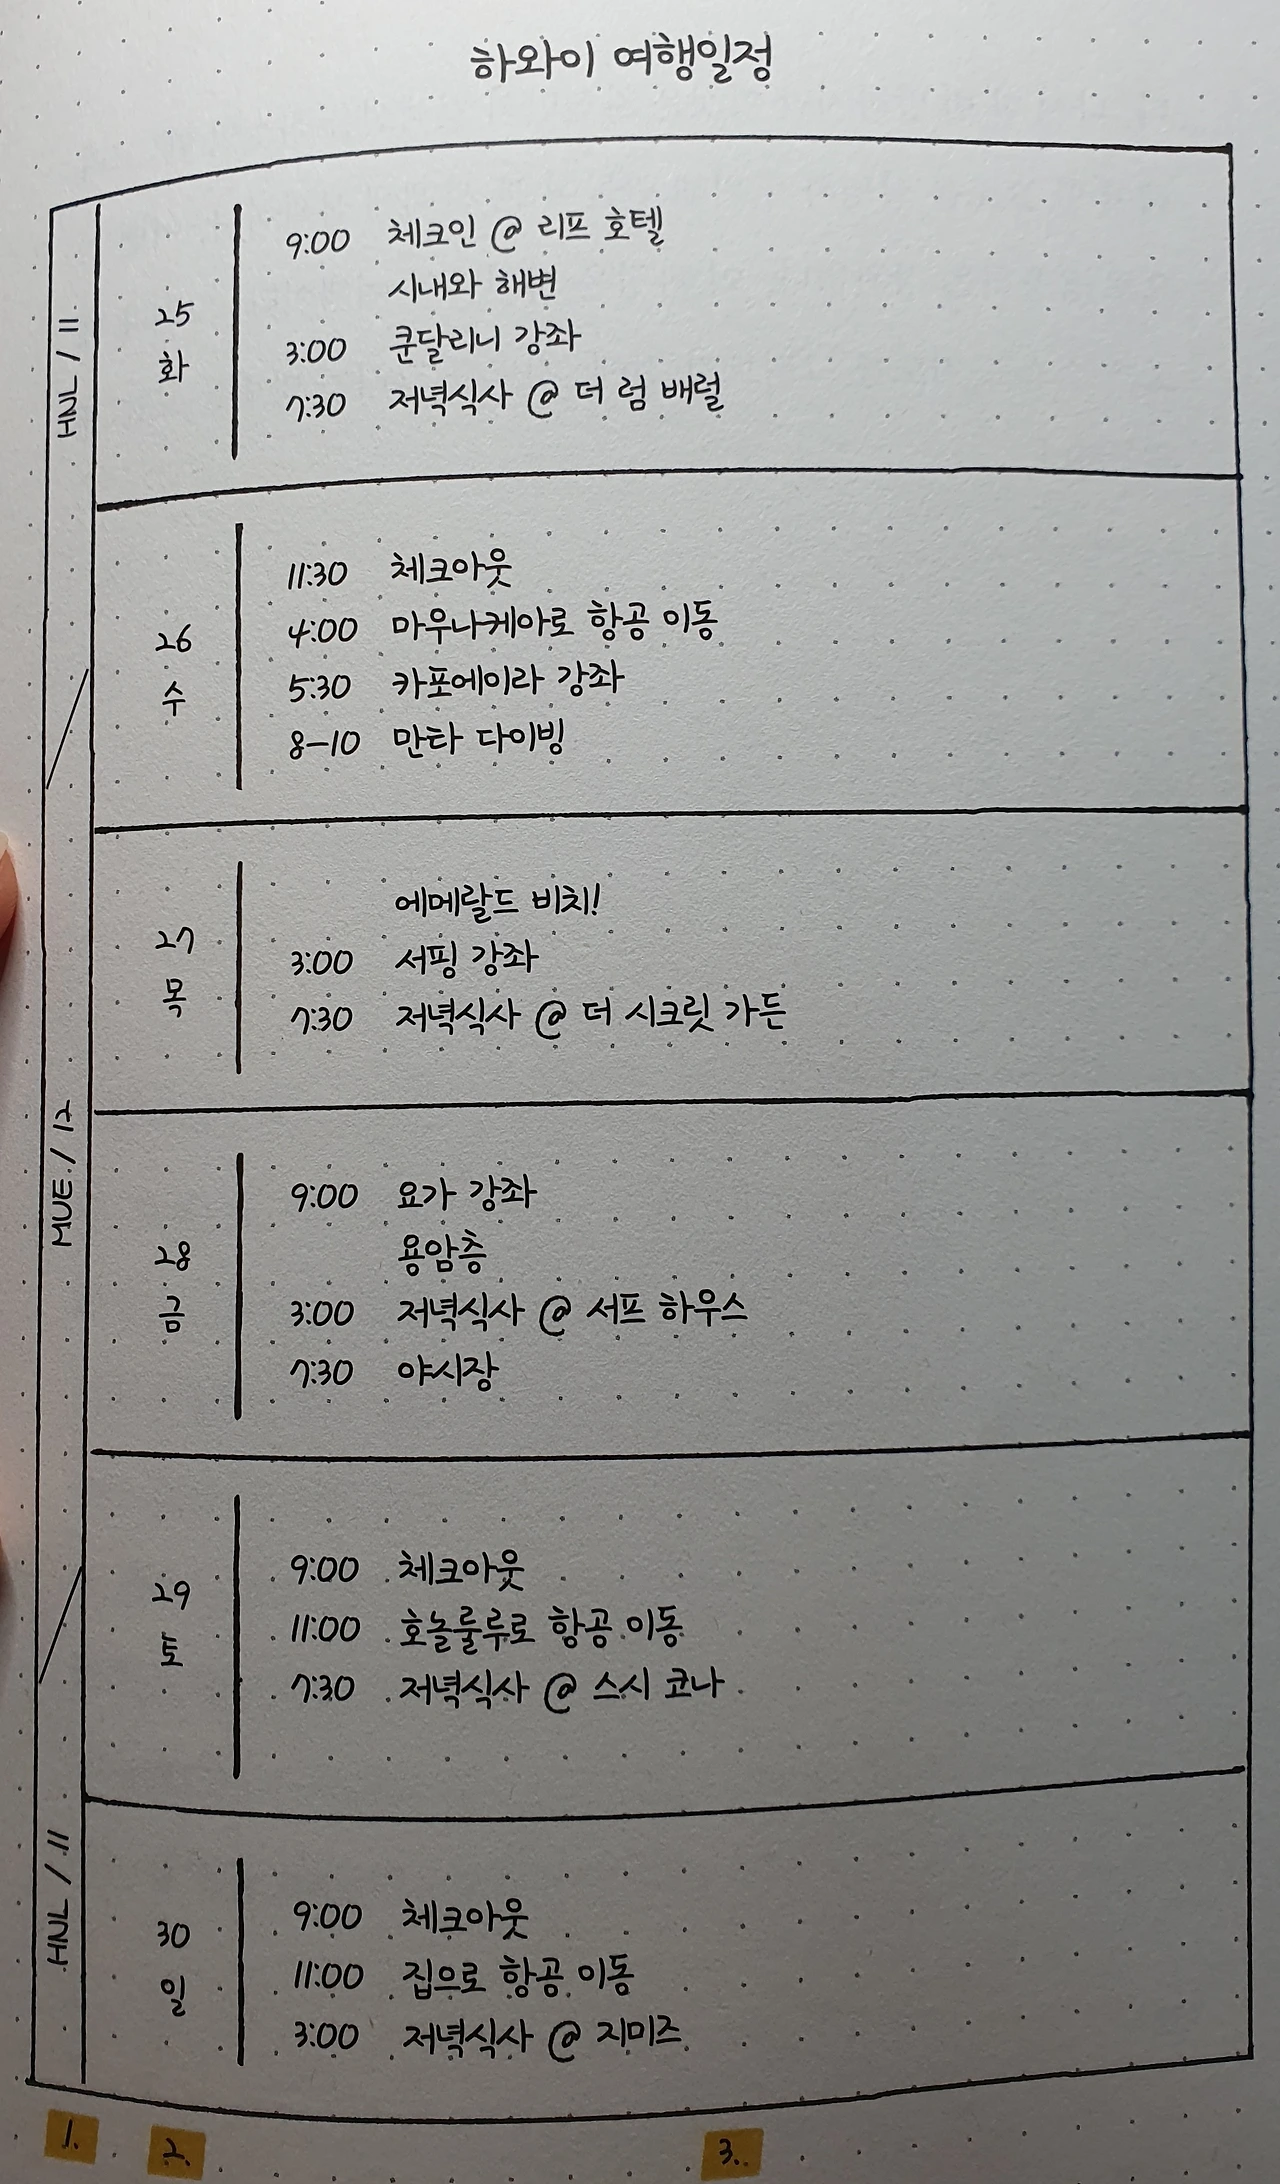 하와이 여행일정
HNL / 11
25
화
9:00 체크인 @ 리프 호텔
시내와 해변
3:00 쿤달리니 강좌
7:30 저녁식사 @ 더 럼 배럴
26
수
11:30 체크아웃
4:00 마우나케아로 항공 이동
5:30 카포에이라 강좌
8-10 만타 다이빙
MUE / 12
27
목
에메랄드 비치!
3:00 서핑 강좌
7:30 저녁식사 @ 더 시크릿 가든
28
금
9:00 요가 강좌
용암층
3:00 저녁식사 @ 서프 하우스
7:30 야시장
29
토
9:00 체크아웃
11:00 호놀룰루로 항공 이동
7:30 저녁식사 @ 스시 코나
HNL / 11
30
일
9:00 체크아웃
11:00 집으로 항공 이동
3:00 저녁식사 @ 지미즈
1. 2. 3.